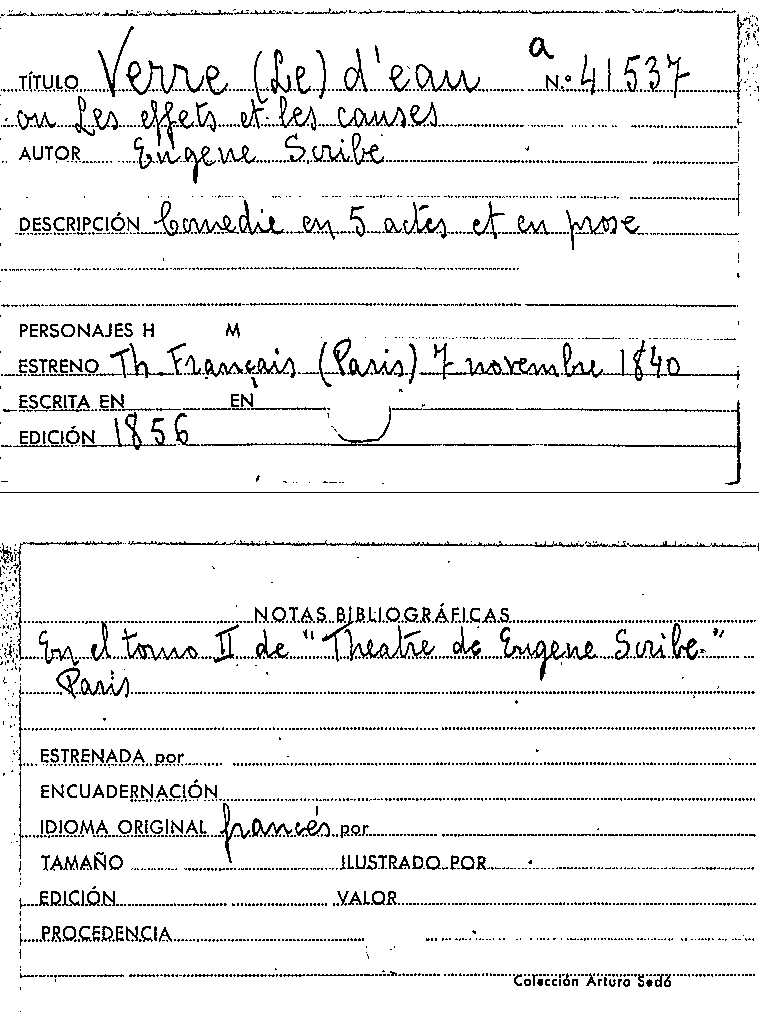 a
TÍTULO Verre (Le) d'eau N.º 41537
ou Les effets et les causes
AUTOR Eugene Scribe
DESCRIPCIÓN Comedie en 5 actes et en prose
PERSONAJES H M
ESTRENO Th. Français (Paris) 7 novembre 1840
ESCRITA EN EN
EDICIÓN 1856
NOTAS BIBLIOGRÁFICAS
En el tomo II de "Theatre de Eugene Scribe."
Paris
ESTRENADA por
ENCUADERNACIÓN
IDIOMA ORIGINAL francés por
TAMAÑO ILUSTRADO POR
EDICIÓN VALOR
PROCEDENCIA
Colección Arturo Sedó